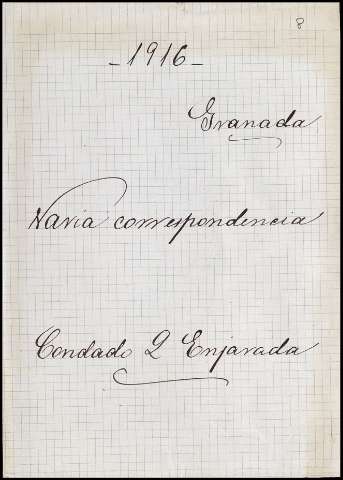 8
- 1916 -
Granada
Varia correspondencia
Condado D Enjarada